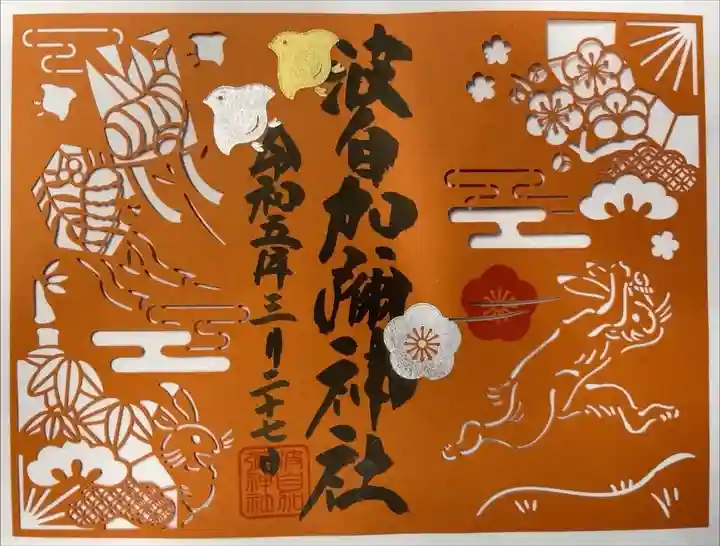 波自加彌神社
令和五年三月二十七日
波自加
彌神社